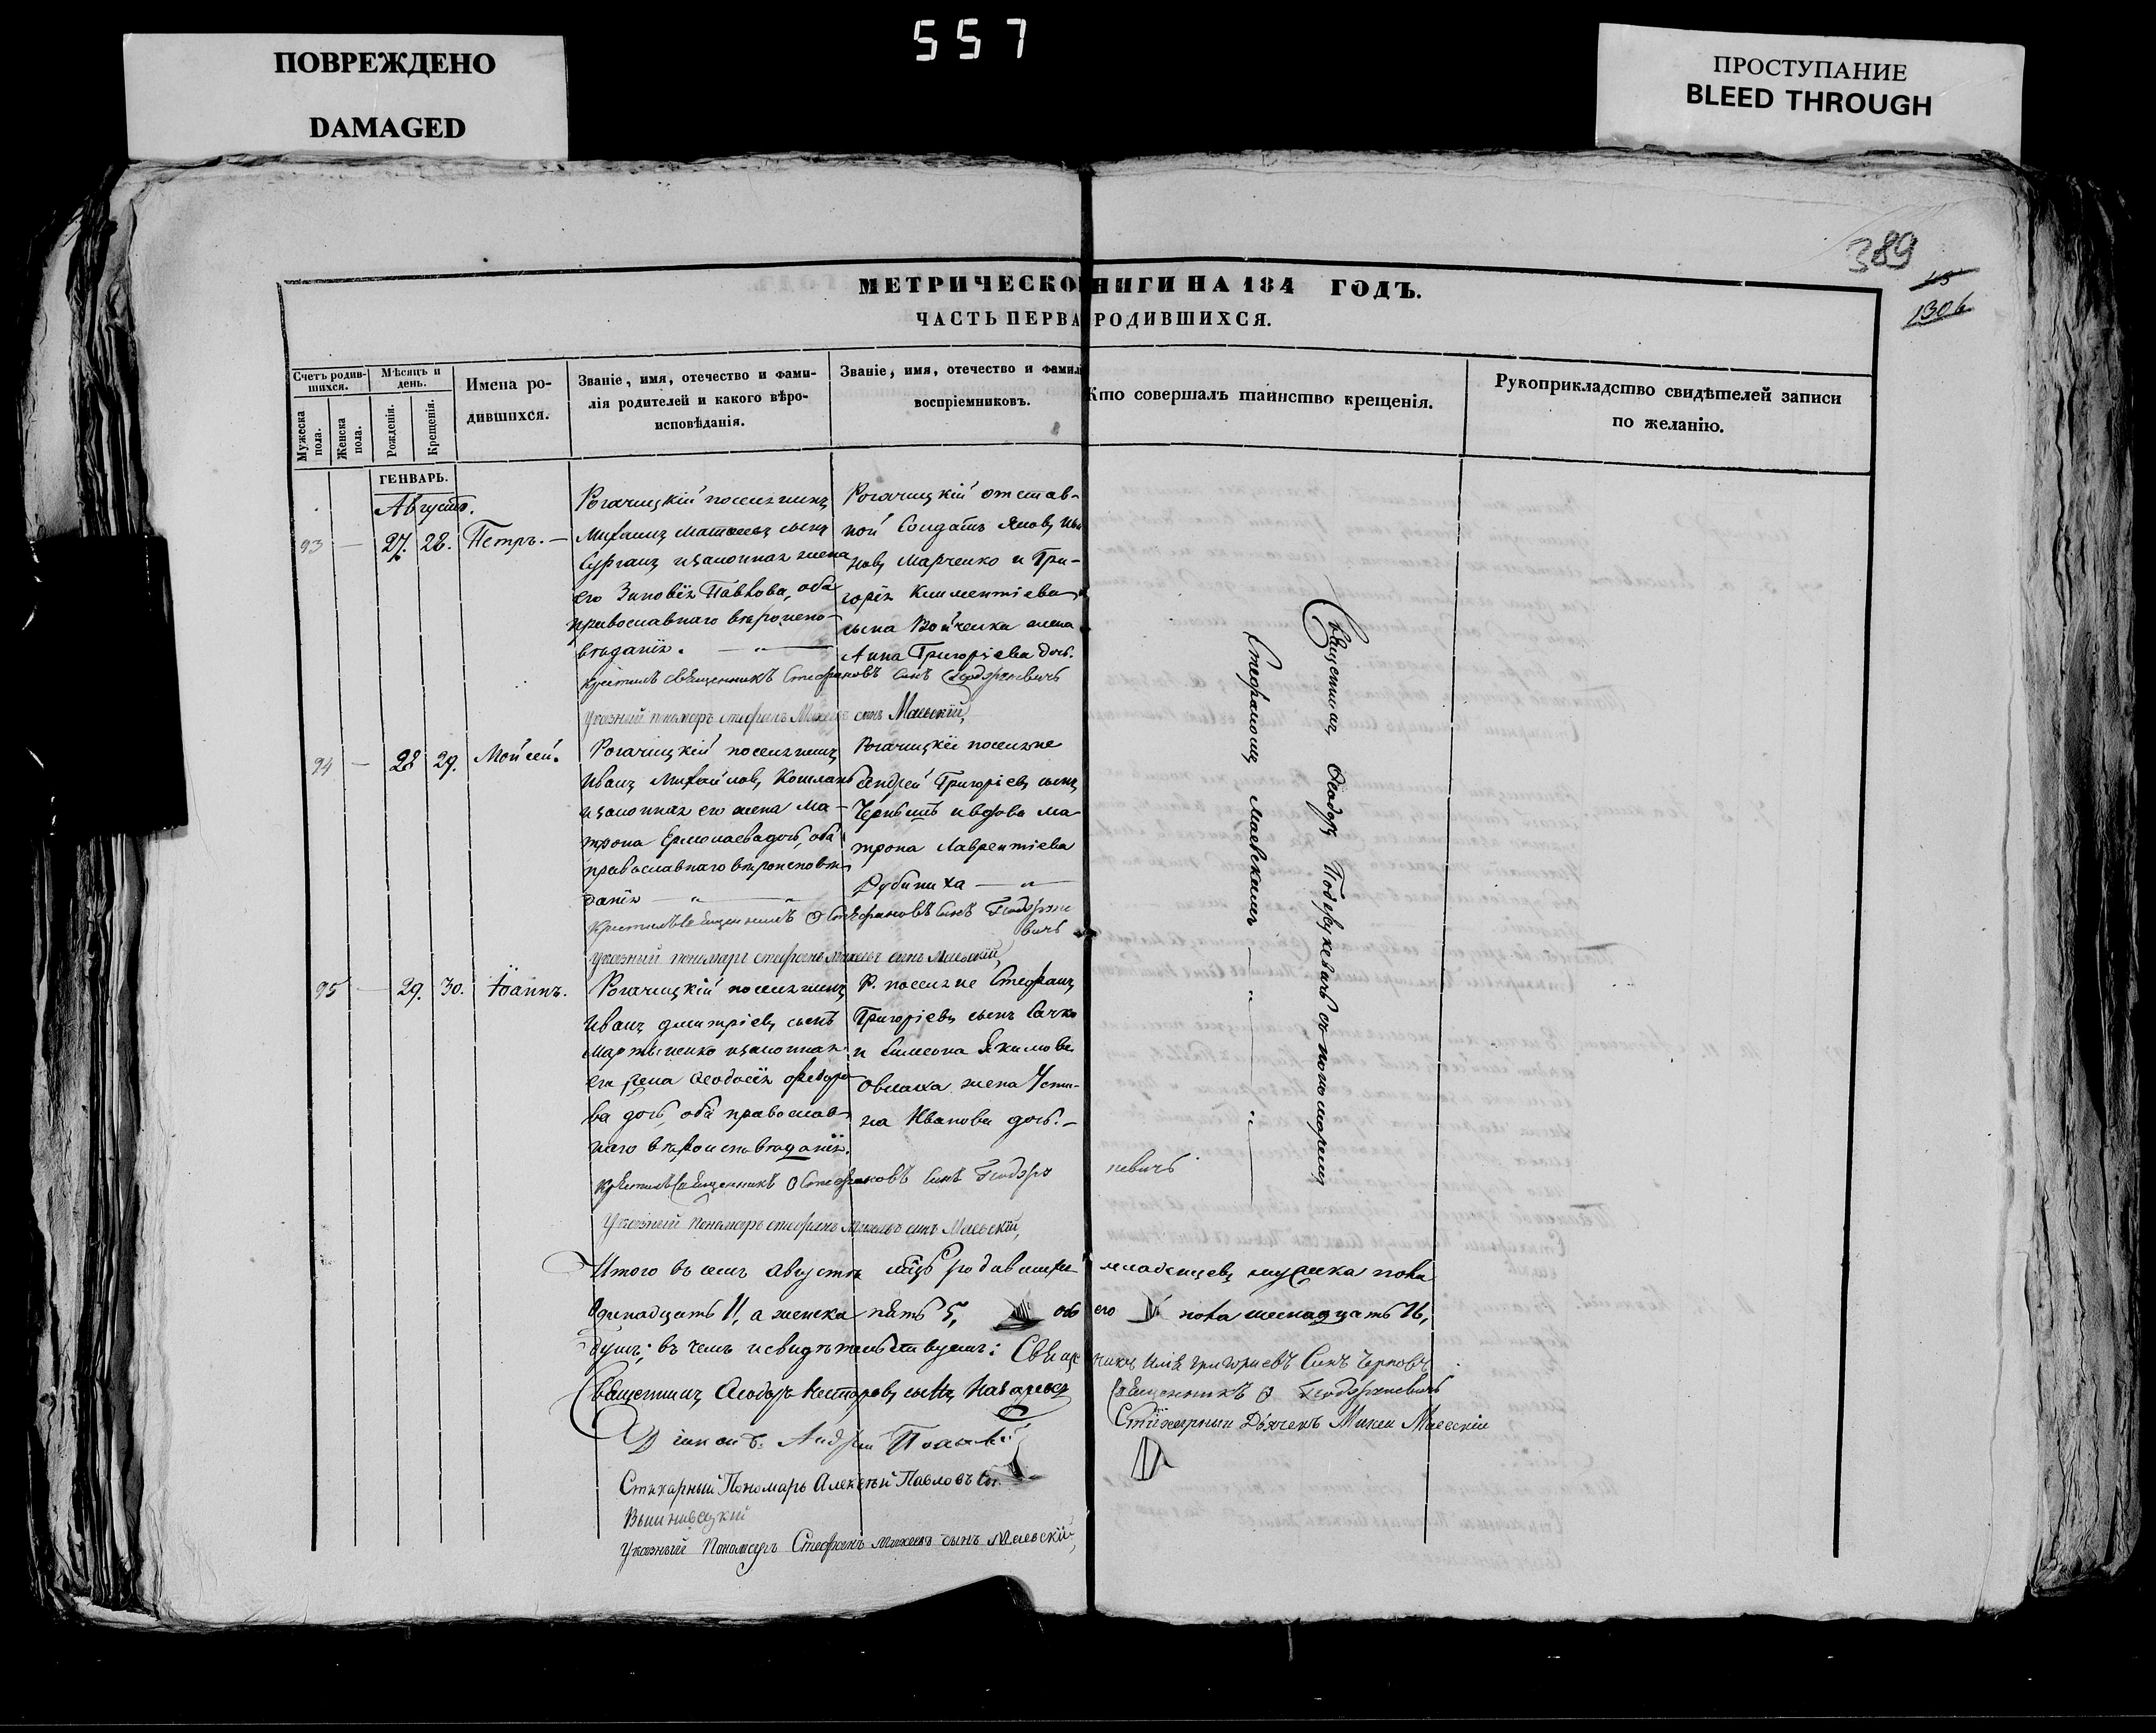 557
ПОВРЕЖДЕНО
DAMAGED
ПРОСТУПАНИЕ
BLEED THROUGH
389
45
1306
МЕТРИЧЕСКО НИГИ НА 184 ГОДЪ.
ЧАСТЬ ПЕРВА РОДИВШИХСЯ.
Счетъ родив-
шихся.
Мужеска
пола.
Женска
пола.
Мѣсяцъ и
день.
Рожденія.
Крещенія.
Имена ро-
дившихся.
Званіе, имя, отечество и фами-
лія родителей и какого вѣро-
исповѣданія.
Званіе, имя, отечество и фамил
воспріемниковъ.
Кто совершалъ таинство крещенія.
Рукоприкладство свидѣтелей записи
по желанію.
ГЕНВАРЬ.
Августъ.
93 — 27. 28. Петръ. —
Рогачицкій поселянинъ
Михаилъ сынъ
Сурганъ изаконная жена
его Зиновія Павлова, оба
православнаго вѣроиспо-
вѣданія. — „ —
Рогачицкій отстав-
ной Солдатъ Яковъ Ива
новъ Марченко и Гри-
горія Климентіева
сына Войченка жена
Анна Григоріева дочь.
крестилъ Священникъ Стефановъ Синъ
Указный пономарь Стефанъ Михеевъ сынъ Маевскій,
94 — 28 29. Мойсей.
Рогачицкій поселянинъ
Иванъ Михайловъ
изаконная его жена Ма-
трона Ермолаева дочь, оба
православнаго вѣроисповѣ-
данія — „ — „
Рогачицкіе поселяне
Андрей Григоріевъ сынъ
Чернышъ ивдова Ма
трона Лаврентіева
Рубаниха — „ —
крестилъ Священникъ Ѳ Стефановъ Синъ
вичъ
Указный пономарь Стефанъ Михеевъ сынъ Маевскій,
95 — 29. 30. Іоаннъ.
Рогачицкій поселянинъ
Иванъ Димитріевъ сынъ
Мартыненко изаконная
его жена Ѳеодосія Ѳеодоро
ва дочь, оба православ
наго вѣроисповѣданія.
Р. поселяне Стефанъ
Григоріевъ сынъ Сачко
и Симеона Якимова
жена Усти-
на Иванова дочь. —
крестилъ Священникъ Ѳ Стефановъ Синъ
невичъ
Указный пономарь Стефанъ Михеевъ сынъ Маевскій,
Священникъ Ѳеодоръ съ пономаремъ
Стефаномъ Маевскимъ — „ — „ —
Итого въ семъ августѣ мцѣ родившихся младенцевъ мужска пола
одинадцать 11, а женска пять 5, обо его пола шеснадцать 16,
душъ; въ чемъ исвидѣтельствуемъ: Священ никъ Илія Григориевъ Синъ Черновъ
Священникъ Ѳеодоръ Несторовъ сынъ
Священникъ Ѳ
Стихарный Дьячекъ Михей Маевскій
Діаконъ Андрей
Стихарный Пономарь Алексѣй Павловъ Сы.
Вышнивецкій
Указный Пономарь Стефанъ Михеевъ сынъ Маевскій,